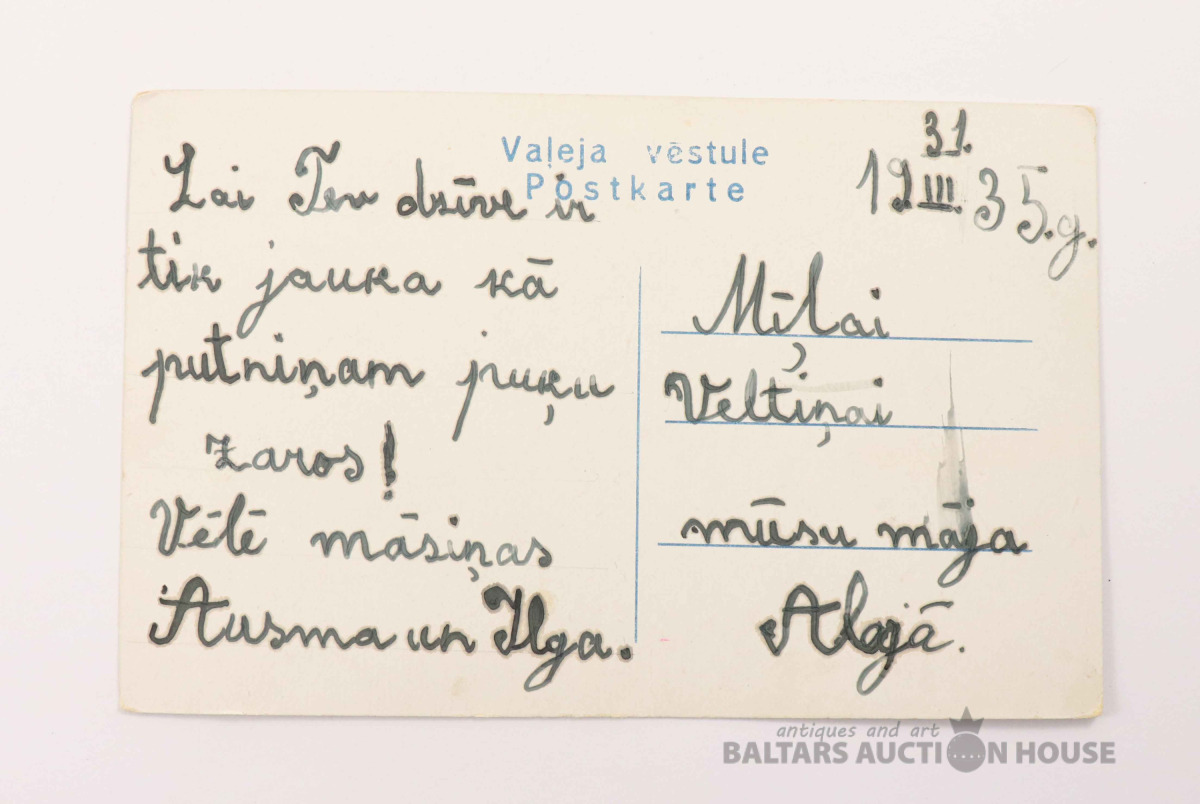 Vaļeja vēstule
Postkarte
31.
19 III. 35.g.
Lai Tev dzīve ir
tik jauka kā
putniņam puķu
zaros!
Vēlē māsiņas
Ausma un Ilga.
Mīļai
Veltiņai
mūsu māja
Alojā.
antiques and art
BALTARS AUCTION HOUSE